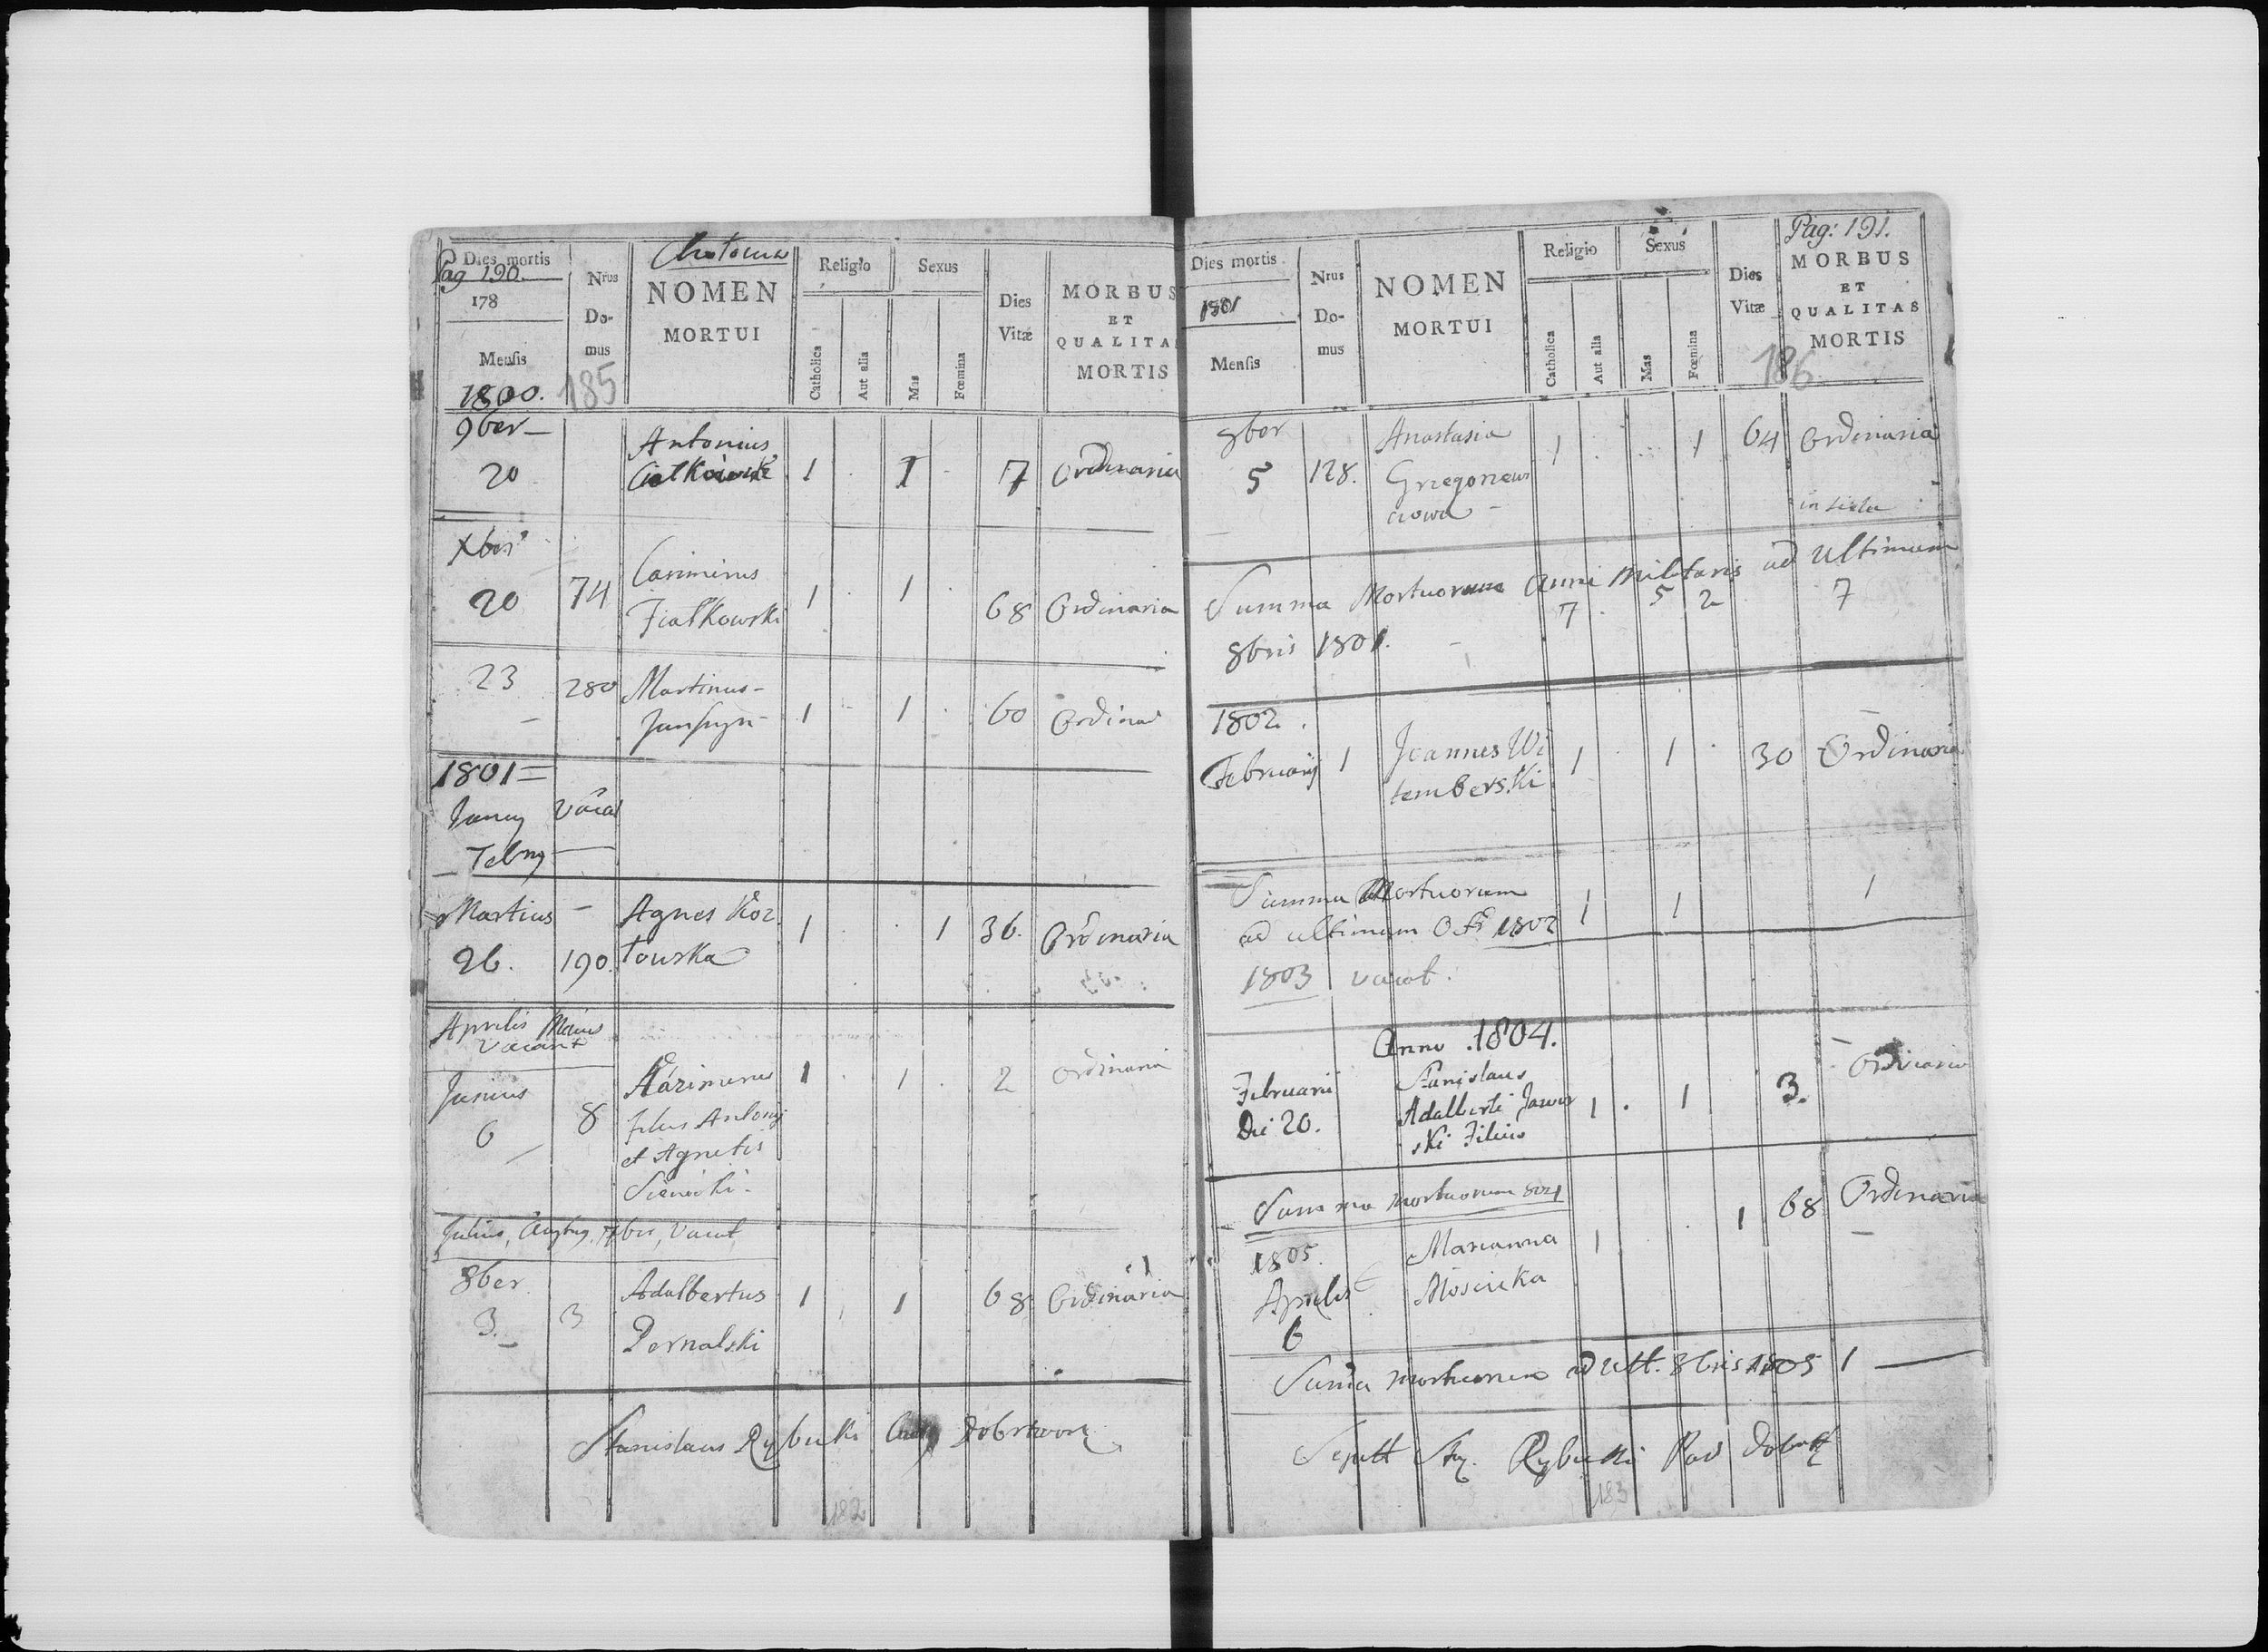 Dies mortis
Pag 190.
178
Mensis
1800.
Nrus
Do-
mus
185
NOMEN
MORTUI
Religio
Catholica
Aut alia
Sexus
Mas
Fœmina
Dies
Vitæ
MORBUS
ET
QUALITA
MORTIS
9ber
20
Antonius
1 . 1 . 7 Ordinaria
Xbris
20 74
Casimirus
Fiałkowski
1 1 . 68 Ordinaria
23 280 Martinus
1 1 . 60
1801
vacat
Martius
26. 190.
Agnes Koz
łowska
1 . . 1 36. Ordinaria
Aprilis Maius
vacant
Junius
6 8
Kazimirus
filius Antonij
et Agnetis
1 . 1 . 2 Ordinaria
Julius, 7bris, vacat
8ber
3. 3
Adalbertus
Pernalski
1 1 68 Ordinaria
Stanislaus Rybicki
182
Dies mortis
1801
Mensis
Nrus
Do-
mus
NOMEN
MORTUI
Religio
Catholica
Aut alia
Sexus
Mas
Fœmina
Dies
Vitæ
Pag: 191.
MORBUS
ET
QUALITAS
MORTIS
186
8ber
5 128.
Anastasia
Grzegorzew
czowa
1 . . 1 64 Ordinaria
Summa Mortuorum Anni Militaris ad Ultimum
7 5 2 7
8bris 1801.
1802.
Februarij 1
Joannes Wi
temberski
1 . 1 . 30 Ordinaria
Summa Mortuorum 1 1 1
ad ultimum 1802
1803 vacat.
Anno 1804.
Februarii
Die 20.
Stanislaus
Adalberti Jawor
ski Filius
1 . 1 3. Ordinaria
Summa mortuorum 804
1805.
Aprilis
6
Marianna
Moscicka
1 . 1 68 Ordinaria
mortuorum ad Ult. 8bris 1805 1
Rybicki
183